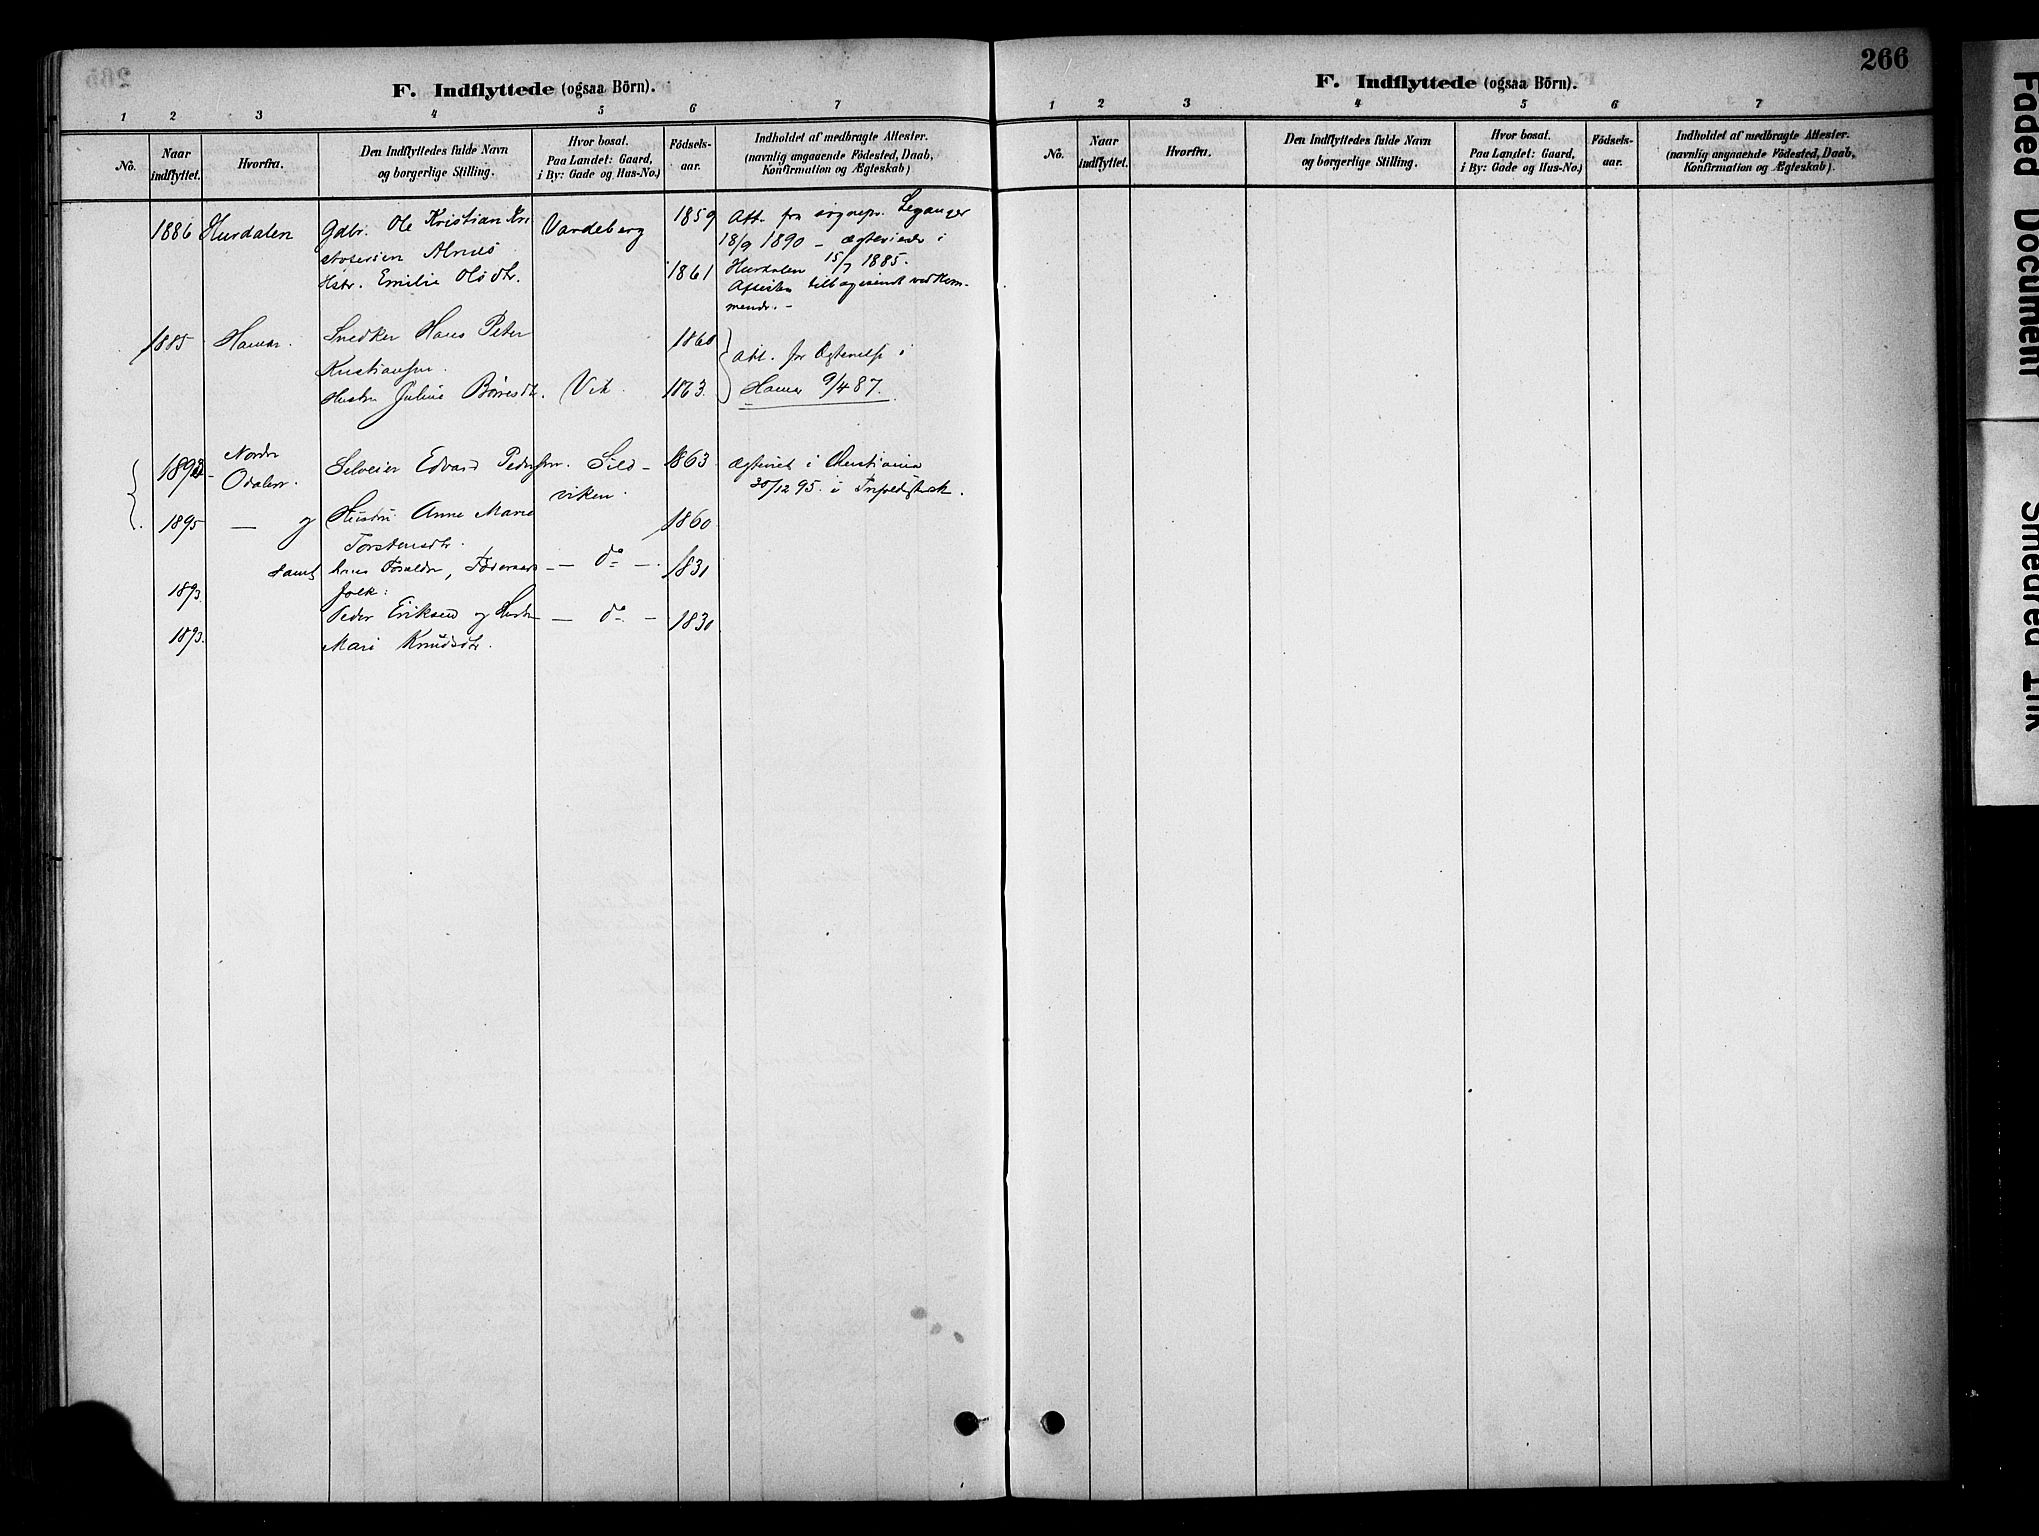 F. Indflyttede (ogsaa Börn).
1 2 3 4 5 6 7
No. Naar indflyttet. Hvorfra. Den Indflyttedes fulde Navn og borgerlige Stilling. Hvor bosat. Paa Landet: Gaard, i By: Gade og Hus-No.) Födsels-aar. Indholdet af medbragte Attester. (navnlig angaaende Födested, Daab, Konfirmation og Ægteskab)
1886 Hurdalen Gdbr. Ole Kristian Kri Vardeberg 1859 Att. fra sognepr. Leganger
stofersen Alnæs 18/9 1890 – ægteviede i
Hstr. Emilie Olsdtr. 1861 Hurdalen 15/7 1885.
Attesten tilbagesendt vedkom-
mende. –
1885 Hamar. Snedker Hans Peter 1860
Kristiansen. Att. for Ægtevielse i
Hustru Juline Børresdtr. Vik. 1863. Hamar 9/4 87.
1892 Nordre Odalen. Edvard Pedersen. Sild- 1863 Ægteviet i Christiania
viken. 30/12 95. i
1895 — og Hustru Anne Marie 1860
Torstensdtr.
samt hans Forældre, — do — 1831
1893. folk:
Peder Eriksen og Hustru — do — 1830
1893. Mari Knudsdtr.
266
F. Indflyttede (ogsaa Börn).
1 2 3 4 5 6 7
No. Naar indflyttet. Hvorfra. Den Indflyttedes fulde Navn og borgerlige Stilling. Hvor bosat. Paa Landet: Gaard, i By: Gade og Hus-No.) Födsels-aar. Indholdet af medbragte Attester. (navnlig angaaende Födested, Daab, Konfirmation og Ægteskab).
Faded Document
Smeared Ink